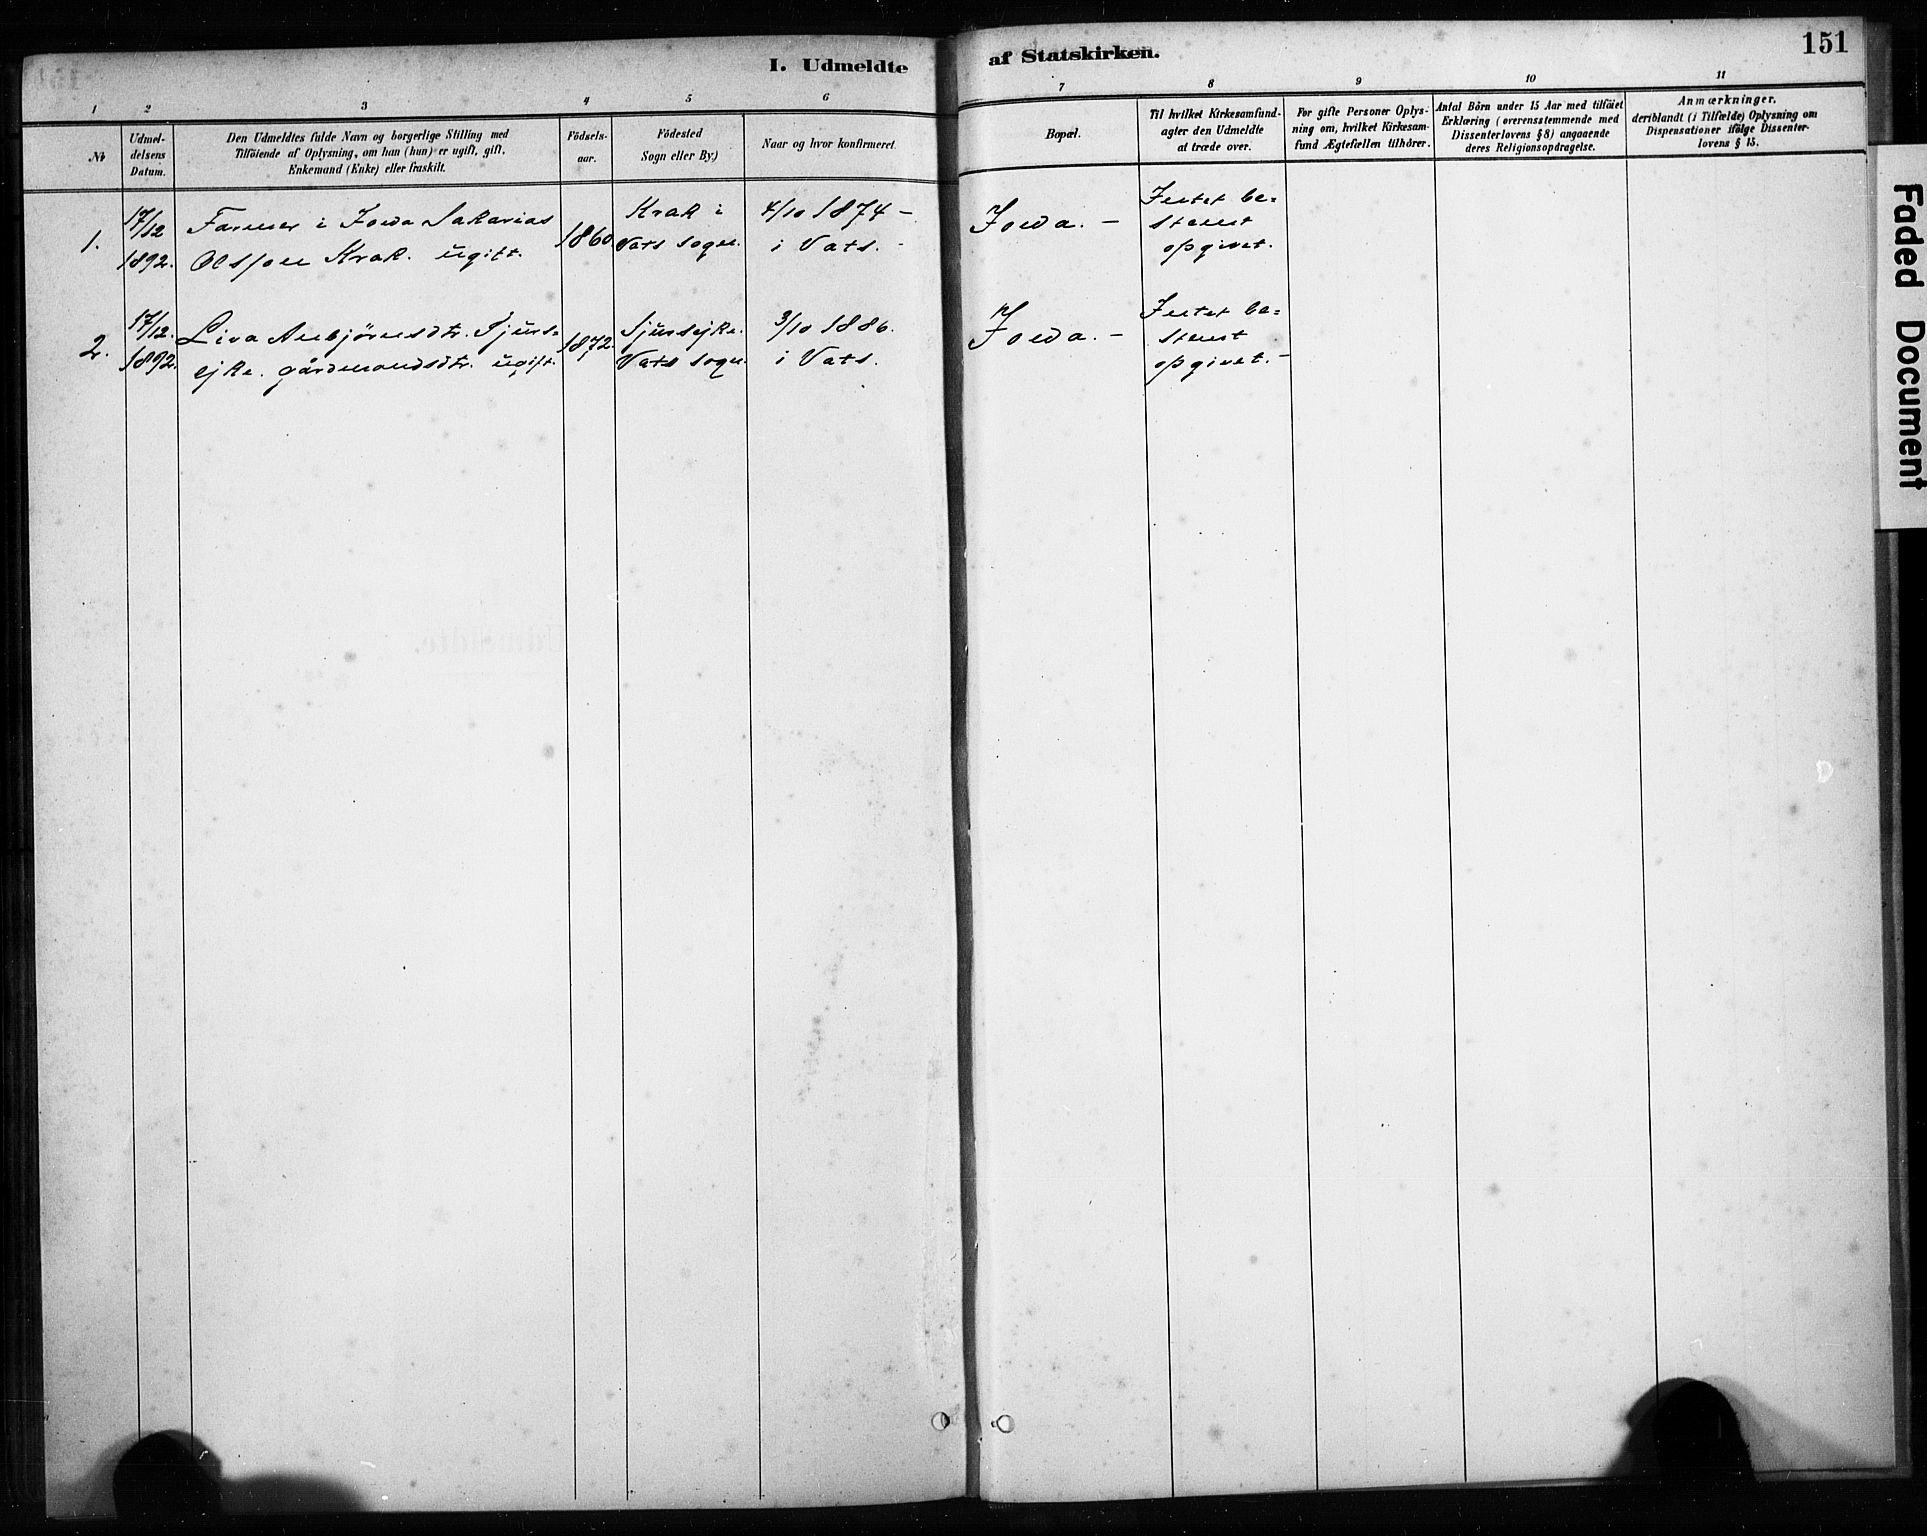 I. Udmeldte af Statskirken.
151
1 2 3 4 5 6 7 8 9 10 11
№
Udmel-
delsens
Datum.
Den Udmeldtes fulde Navn og borgerlige Stilling med
Tilföiende af Oplysning, om han (hun) er ugift, gift,
Enkemand (Enke) eller fraskilt.
Födsels-
aar.
Födested
Sogn eller By.)
Naar og hvor konfirmeret.
Bopæl.
Til hvilket Kirkesamfund-
agter den Udmeldte
at træde over.
For gifte Personer Oplys-
ning om, hvilket Kirkesam-
fund Ægtefællen tilhörer.
Antal Börn under 15 Aar med tilföiet
Erklæring (overensstemmende med
Dissenterlovens § 8) angaaende
deres Religionsopdragelse.
Anmærkninger,
deriblandt (i Tilfælde) Oplysning om
Dispensationer ifölge Dissenter-
lovens § 15.
1.
17/12
1892.
Farmer i Iowa Sakarias
Olsson Krak. ugift.
1860
Krak i
Vats sogn.
4/10 1874 –
i Vats. –
Iowa. –
Intet be=
stemt
opgivet.
2.
17/12.
1892.
Liva Anbjörnsdtr. Sjurs=
ejke. gårdmandsdtr. ugift.
1872.
Sjursejke.
Vats sogn.
3/10 1886.
i Vats.
Iowa. –
Intet be=
stemt
opgivet. –
Faded Document